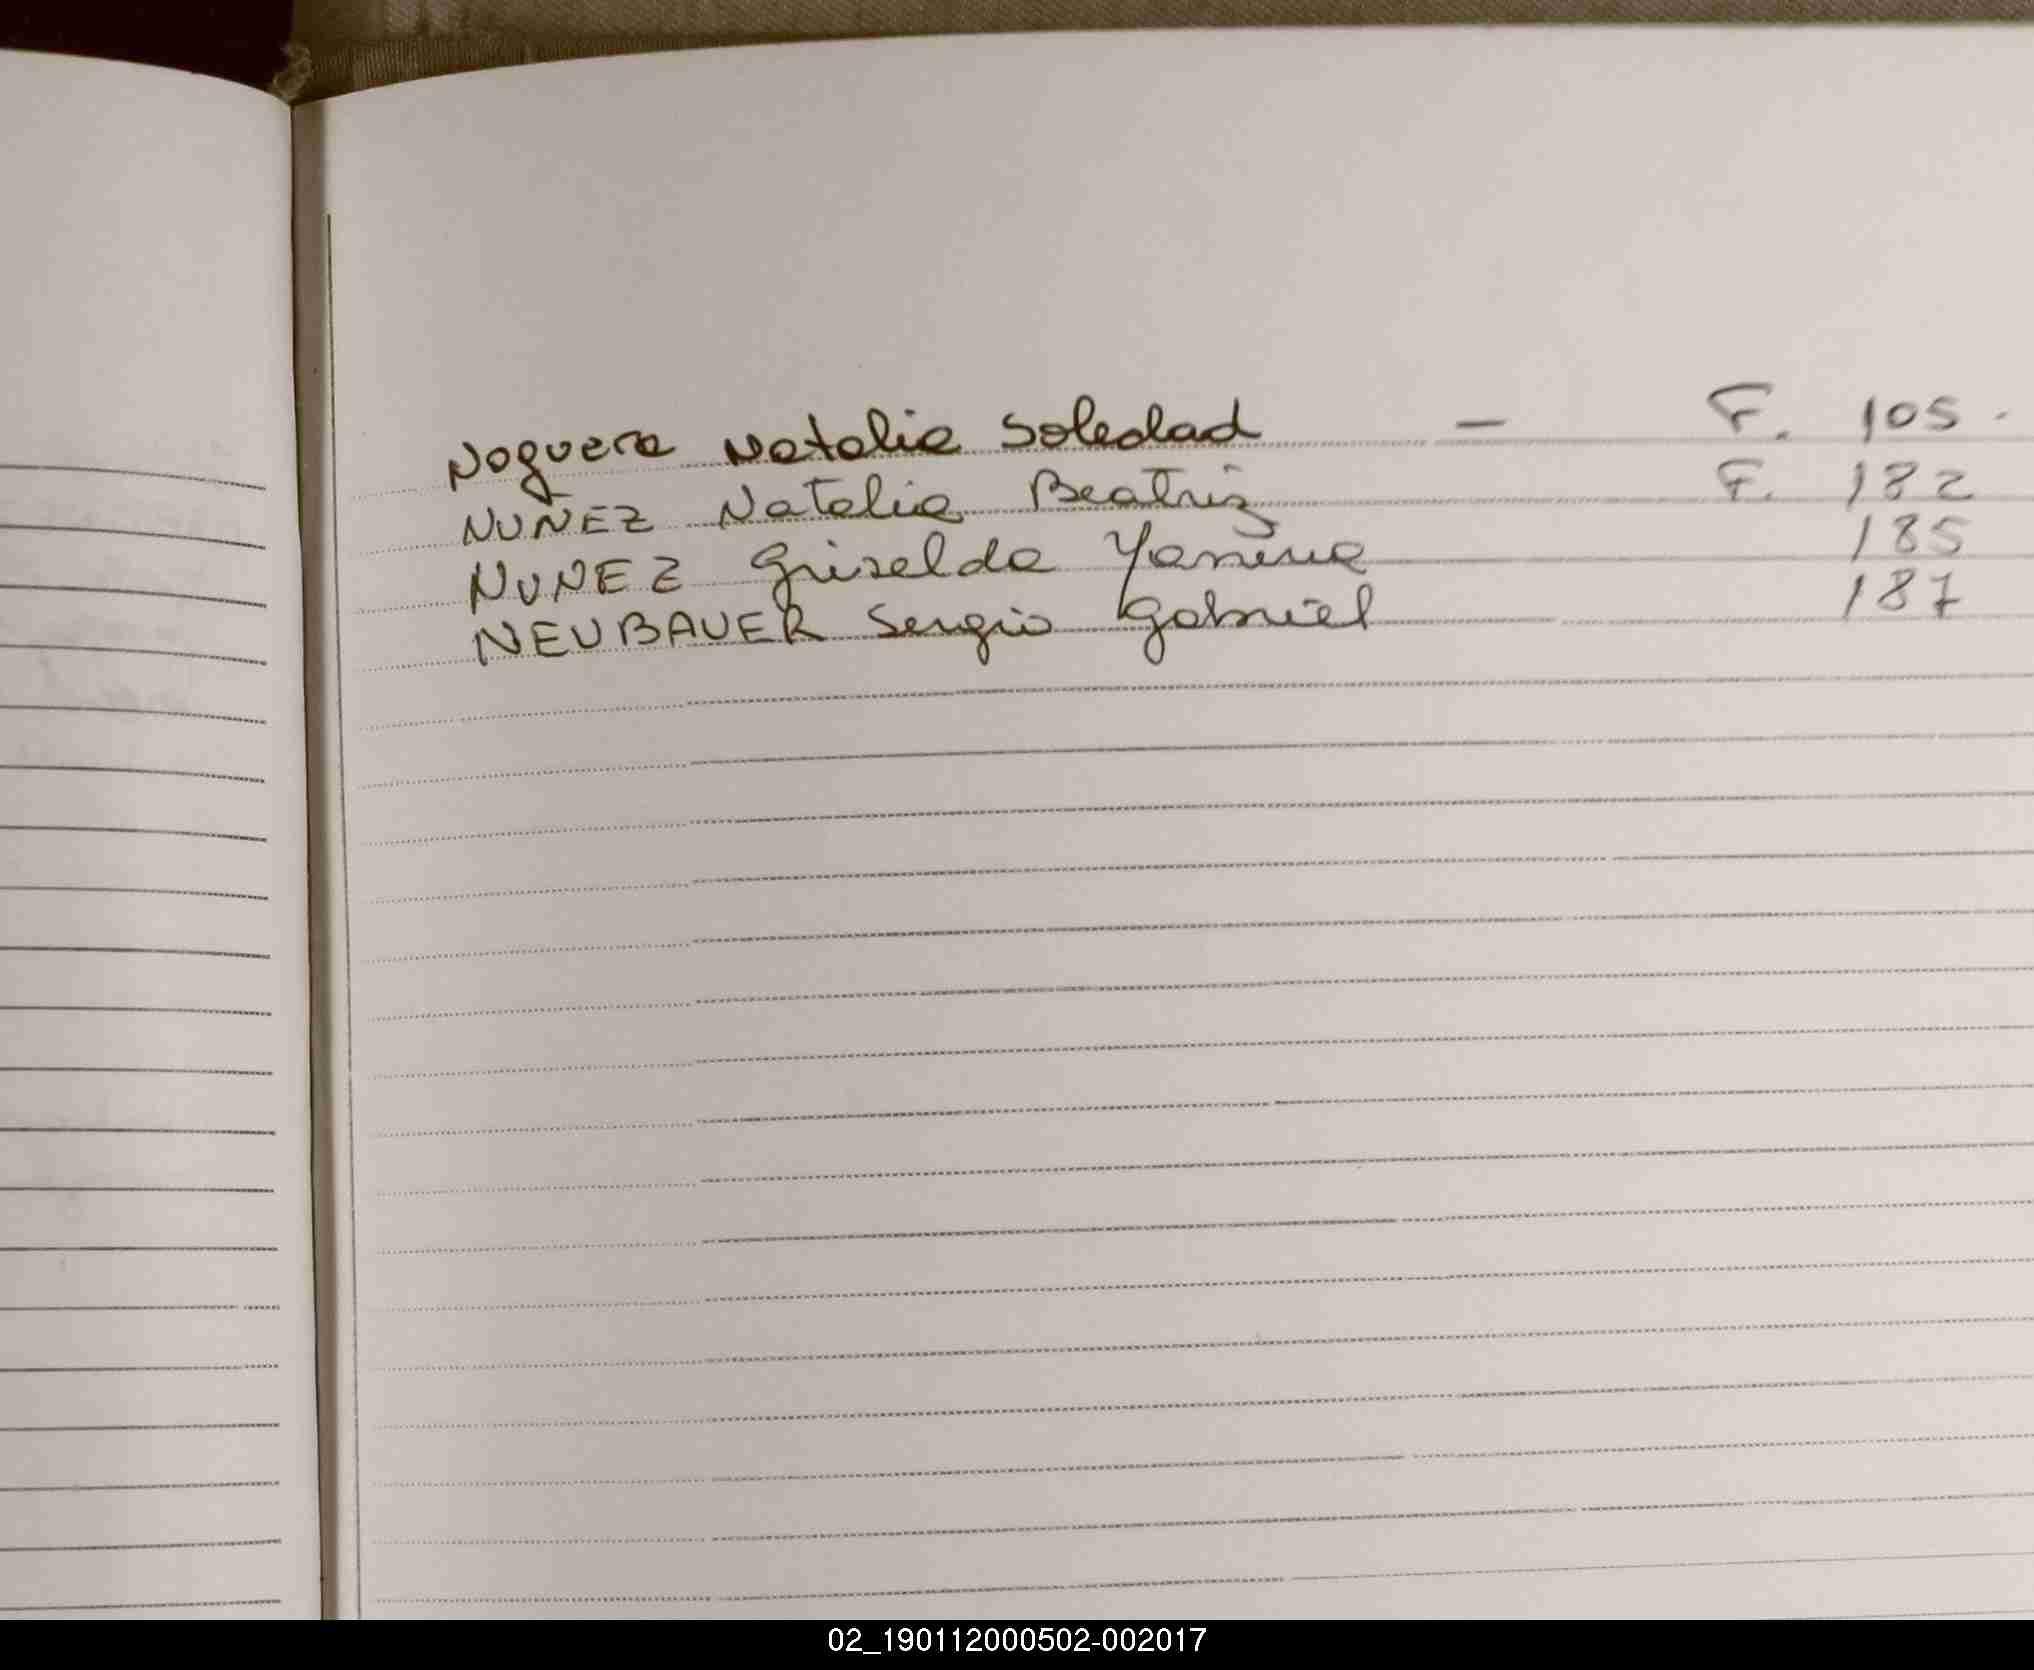 Noguera Natalia Soledad — F. 105.
NUNEZ Natalia Beatriz F. 182
NUNEZ Griselda Yanina 185
NEUBAUER Sergio Gabriel 187
02_190112000502-002017